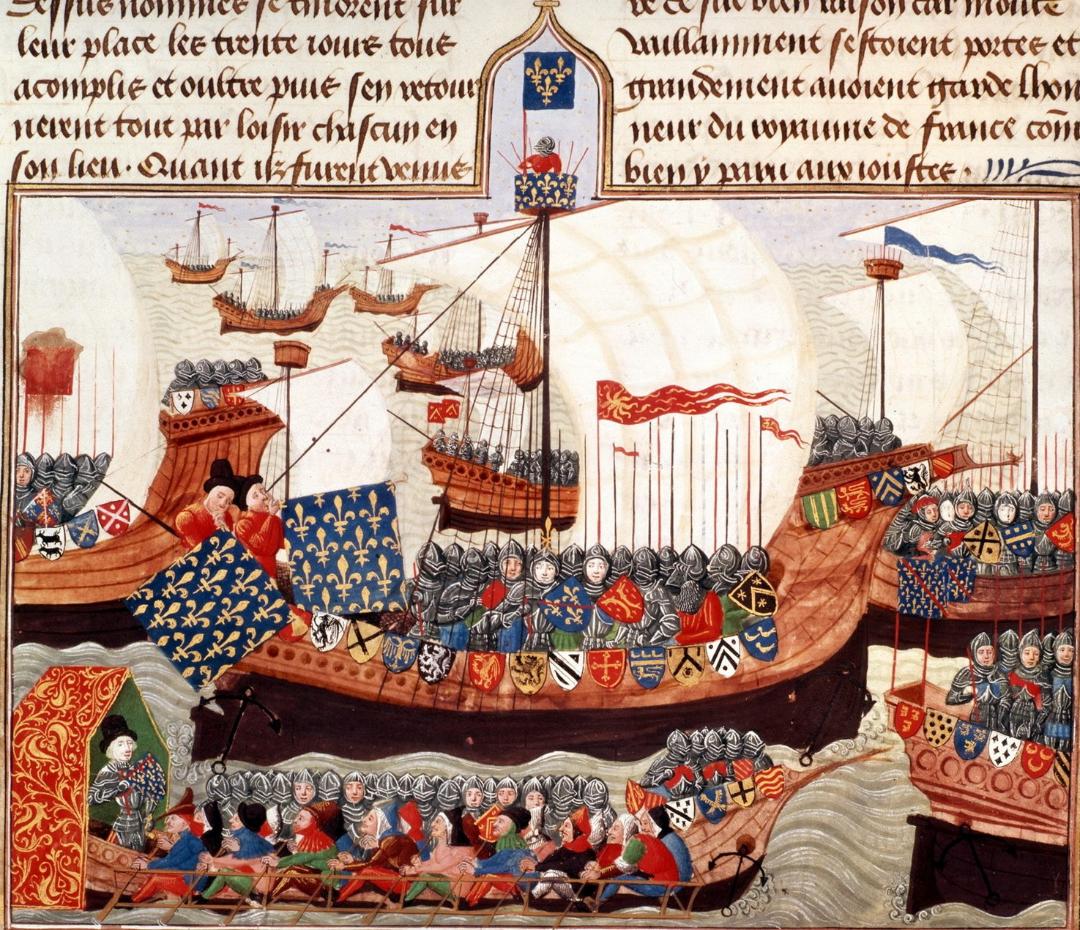 dessus nommes se tindrent sur
leur place les trente iours tous
acomplis et oultre puis sen retour
nerent tout par loisir chascun en
son lieu. Quant ilz furent venus
re ce fut bien raison car moult
vaillamment sestoient portes et
grandement auoient garde lhon
neur du royaume de france com̄
bien y paru aux ioustes.